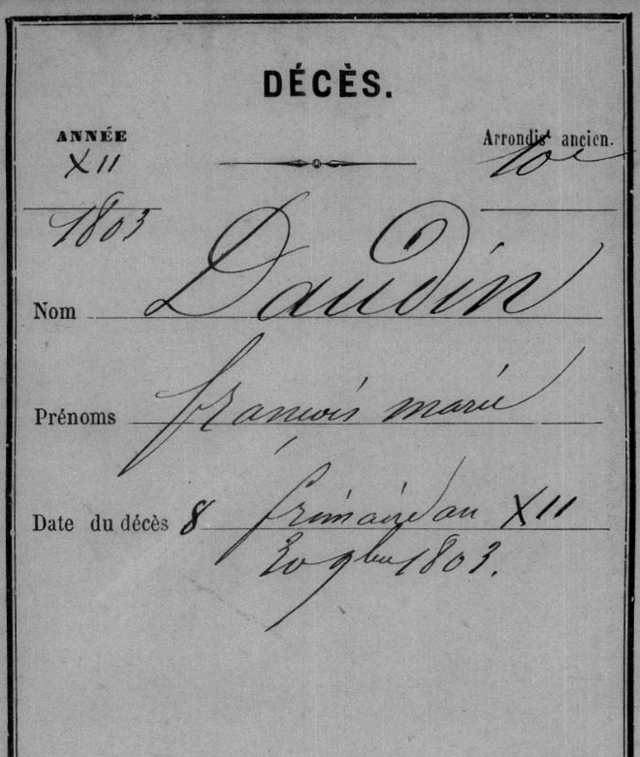 DÉCÈS.
ANNÉE
XII
1803
Arrondis. ancien.
10e
Nom Daudin
Prénoms François marie
Date du décès 8 frimaire an XII
30 9bre 1803.